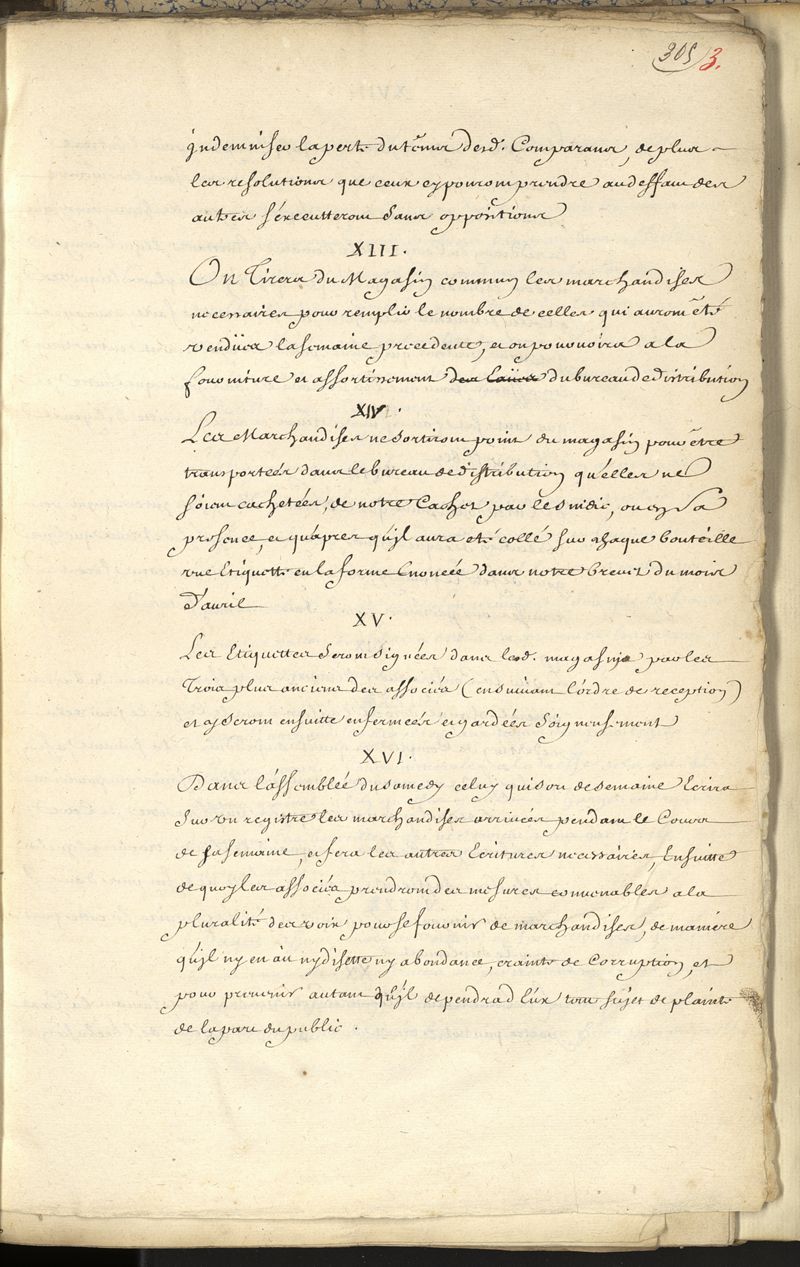 305 3.
indemniser la perte du tems desd. Comparans, de plus
les resolutions que ceux cy pouront prendre au deffaut des
autres s'executteront sans oppositions
XIII.
On Tirera du Magasin commun les marchandises
necessaires pour remplir le nombre de celles qui auront été
vendües la semaine precedente, et on pouvoira a la
fourniture et assortissement des Caises du bureau de distribution
XIV.
Les Marchandises ne sortiront point du magasin pour être
transportées dans le bureau de distribution qu'elles ne
soient cachetées, de notre Cachet par le sindic, ou en sa
presence, et qu'apres qu'il aura eté collé sur chaque bouteille
une Etiquette en la forme Enoncée dans notre brevet du mois
d'avril
XV.
Les Etiquettes seront signées dans led. magasin par les
Trois plus anciens des associés (en suivant l'ordre de reception)
et y seront ensuitte enfermeés et gardées soigneusement
XVI.
Dans l'assemblée du samedy celuy qui sort de semaine Ecrira
sur un registre les marchandises arrivées pendant le Cours
de sa semaine, et fera les autres Ecritures necessaires, Ensuitte
de quoy les associés prendront des mesures convenables a la
pluralité des voix pour se fournir de marchandises, de maniére
qu'il ny en ait ny disette ny abondance, crainte de Corruption, et
pour prevenir autant qu'il dependra d'Eux tout sujet de plainte
de la part du public.